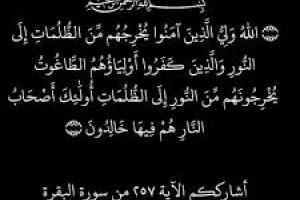 بسم الله الرحمن الرحيم
اللَّهُ وَلِيُّ الَّذِينَ آمَنُوا يُخْرِجُهُم مِّنَ الظُّلُمَاتِ إِلَى
النُّورِ وَالَّذِينَ كَفَرُوا أَوْلِيَاؤُهُمُ الطَّاغُوتُ
يُخْرِجُونَهُم مِّنَ النُّورِ إِلَى الظُّلُمَاتِ أُولَئِكَ أَصْحَابُ
النَّارِ هُمْ فِيهَا خَالِدُونَ
أشارككم الآية ٢٥٧ من سورة البقرة